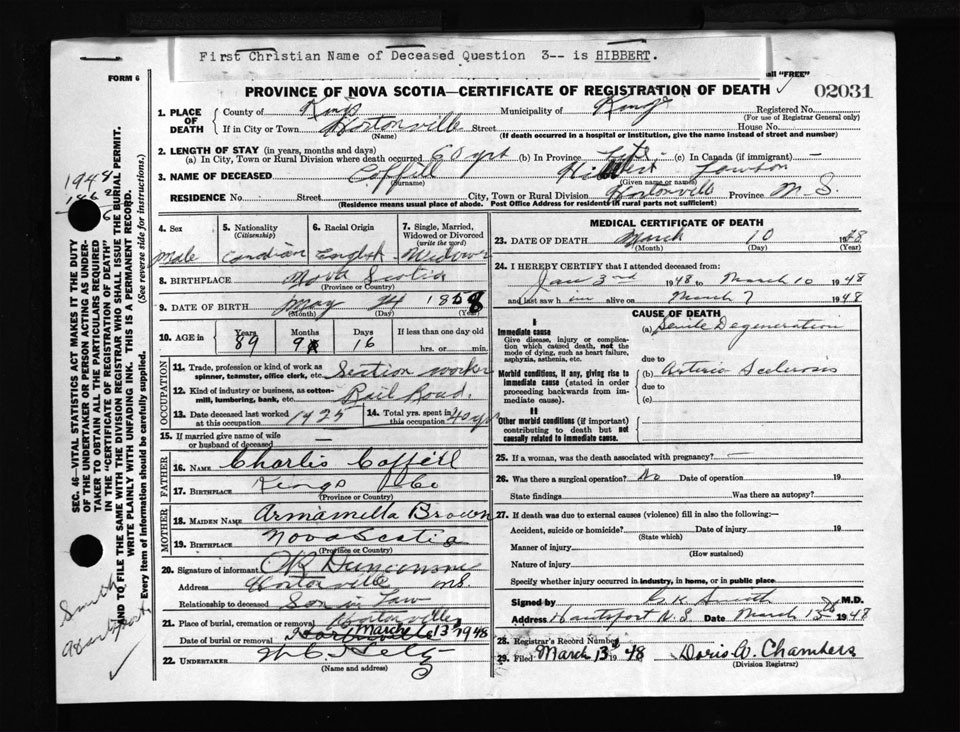 First Christian Name of Deceased Question 3-- is HIBBERT.
FORM 6
shall "FREE"
PROVINCE OF NOVA SCOTIA—CERTIFICATE OF REGISTRATION OF DEATH
02031
1. PLACE OF DEATH County of Kings Municipality of Kings Registered No.
(For use of Registrar General only)
If in City or Town Hortonville Street House No.
(Name) (If death occurred in a hospital or institution, give the name instead of street and number)
2. LENGTH OF STAY (in years, months and days)
(a) In City, Town or Rural Division where death occurred 60 yrs (b) In Province Life (c) In Canada (if immigrant) —
3. NAME OF DECEASED Coffill Hibbert Lawson
(Surname) (Given name or names)
RESIDENCE No. Street City, Town or Rural Division Hortonville Province N. S.
(Residence means usual place of abode. Post Office Address for residents in rural parts not sufficient)
4. Sex 5. Nationality (Citizenship) 6. Racial Origin 7. Single, Married, Widowed or Divorced (write the word)
Male Canadian English Widower
8. BIRTHPLACE Nova Scotia
(Province or Country)
9. DATE OF BIRTH May 24 1858
(Month) (Day) (Year)
10. AGE in Years Months Days If less than one day old
89 9 16 hrs. or min.
OCCUPATION
11. Trade, profession or kind of work as spinner, teamster, office clerk, etc. Section worker
12. Kind of industry or business, as cotton-mill, lumbering, bank, etc. Rail Road.
13. Date deceased last worked at this occupation 1925 14. Total yrs. spent in this occupation 40 yrs
15. If married give name of wife or husband of deceased —
FATHER
16. NAME Charlis Coffill
17. BIRTHPLACE Kings Co
(Province or Country)
MOTHER
18. MAIDEN NAME Armamella Brown
19. BIRTHPLACE Nova Scotia
(Province or Country)
20. Signature of informant
Address Hortonville N.S.
Relationship to deceased Son in Law
21. Place of burial, cremation or removal Hortonville
Date of burial or removal March 13 1948
22. UNDERTAKER
(Name and address)
MEDICAL CERTIFICATE OF DEATH
23. DATE OF DEATH March 10 1948
(Month) (Day) (Year)
24. I HEREBY CERTIFY that I attended deceased from:
Jan 3rd 1948 to March 10 1948
and last saw him alive on March 7 1948
CAUSE OF DEATH
I
Immediate cause (a) Senile Degeneration
Give disease, injury or complication which caused death, not the mode of dying, such as heart failure, asphyxia, asthenia, etc.
due to
Morbid conditions, if any, giving rise to immediate cause (stated in order proceeding backwards from immediate cause). (b) Arterio Sclerosis
due to
(c)
II
Other morbid conditions (if important) contributing to death but not causally related to immediate cause.
25. If a woman, was the death associated with pregnancy? —
26. Was there a surgical operation? No Date of operation 19
State findings Was there an autopsy?
27. If death was due to external causes (violence) fill in also the following:—
Accident, suicide or homicide? Date of injury 19
(State which)
Manner of injury
(How sustained)
Nature of injury
Specify whether injury occurred in industry, in home, or in public place
Signed by G K Smith M.D.
Address Hantsport N. S Date March 13 1948
28. Registrar's Record Number
29. Filed March 13 1948 Doris W. Chambers
(Division Registrar)
SEC. 46—VITAL STATISTICS ACT MAKES IT THE DUTY
OF THE UNDERTAKER OR PERSON ACTING AS UNDER-
TAKER TO OBTAIN ALL THE PARTICULARS REQUIRED
IN THE "CERTIFICATE OF REGISTRATION OF DEATH"
AND TO FILE THE SAME WITH THE DIVISION REGISTRAR WHO SHALL ISSUE THE BURIAL PERMIT.
WRITE PLAINLY WITH UNFADING INK. THIS IS A PERMANENT RECORD.
Every item of information should be carefully supplied. (See reverse side for instructions.)
1948
Smith
Hantsport